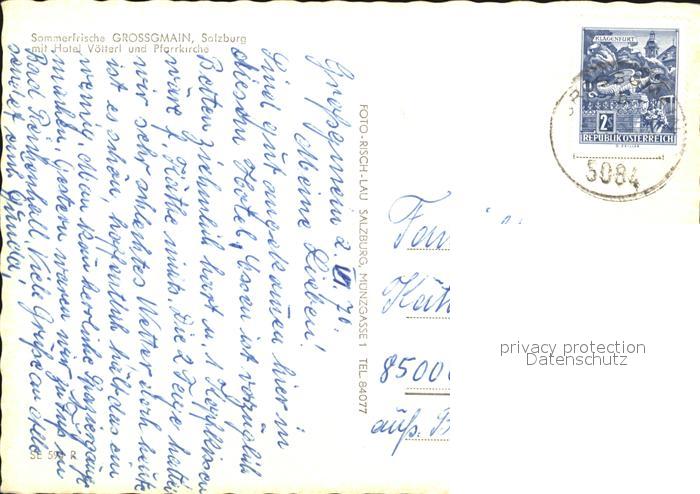 Sommerfrische GROSSGMAIN, Salzburg
mit Hotel Vötterl und Pfarrkirche
Großgmain 2. VI. 70.
Meine Lieben!
Sind gut angekommen hier in
diesem Hotel, Essen ist vorzüglich
Betten ziemlich hart u. 1 Kopfkissen
wäre f. Käthe nichts. Die 2 Tage hatten
wir sehr schlechtes Wetter doch heute
ist es schön, hoffentlich hält das ein
wenig. Man kann herrliche Spaziergänge
machen. Gestern waren wir zu Fuß in
Bad Reichenhall. Viele Grüße an alle
sendet
SE 594 R
FOTO-RISCH-LAU SALZBURG, MÜNZGASSE 1 TEL. 84077
KLAGENFURT
2S
REPUBLIK ÖSTERREICH
5084
Fam
Käth
8500
auß. B
privacy protection
Datenschutz